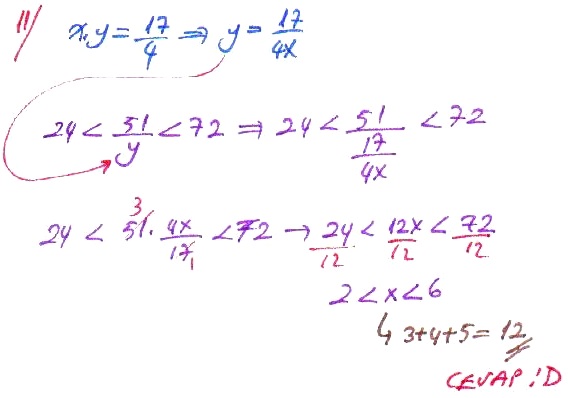 11) x.y = 17/4 ⇒ y = 17/4x
24 < 51/y < 72 ⇒ 24 < 51/(17/4x) < 72
24 < 51. 4x/17 < 72 → 24/12 < 12x/12 < 72/12
3 1
2 < x < 6
↳ 3+4+5 = 12
CEVAP : D